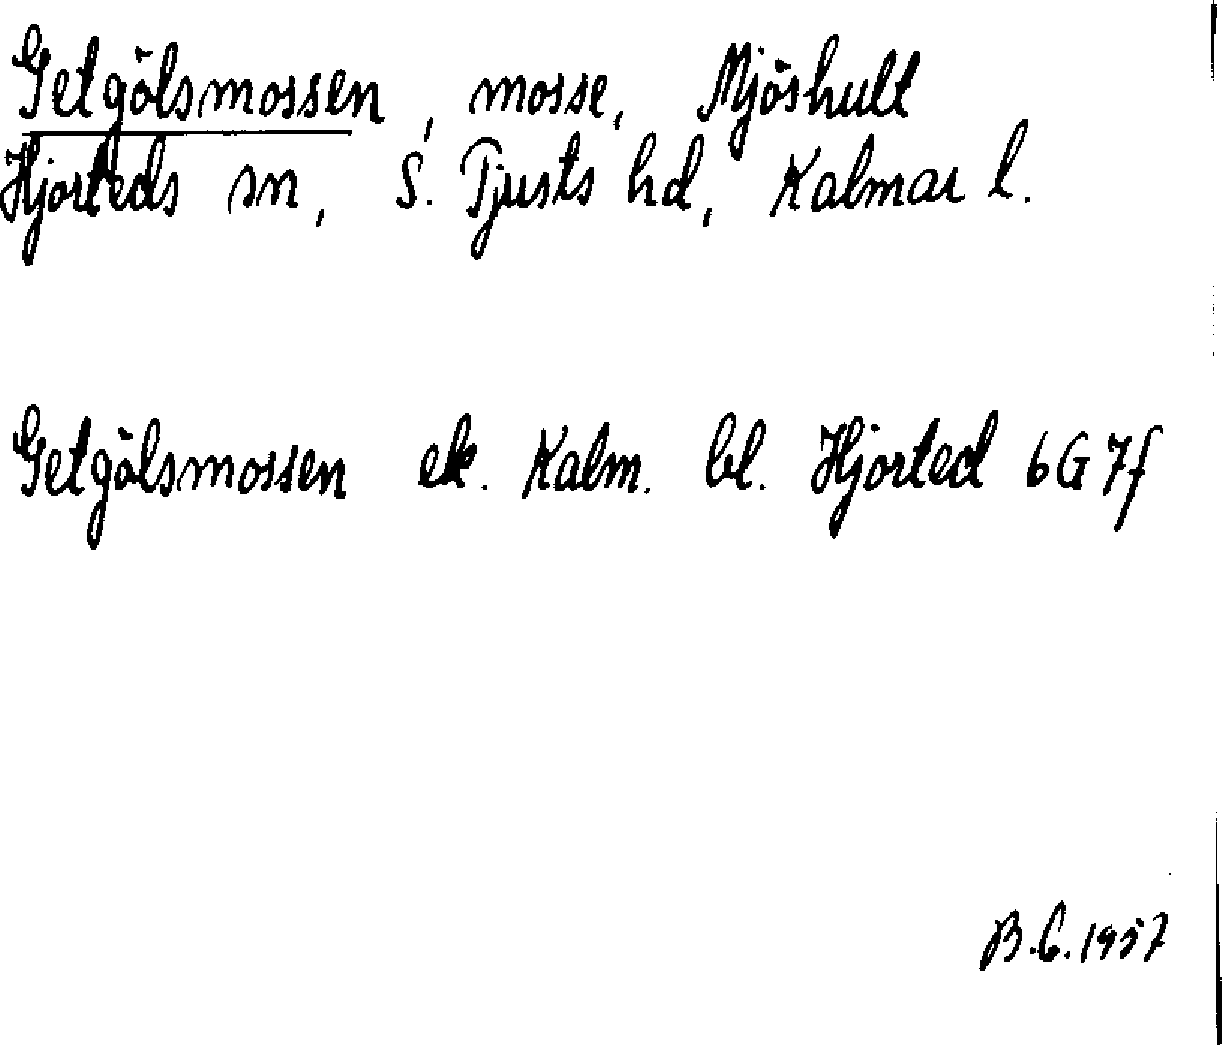 Getgölsmossen, mosse, Mjöshult
Hjorteds sn, S. Tjusts hd, Kalmar l.
Getgölsmossen ek. Kalm. bl. Hjorted 6G 7f
B.G. 1957